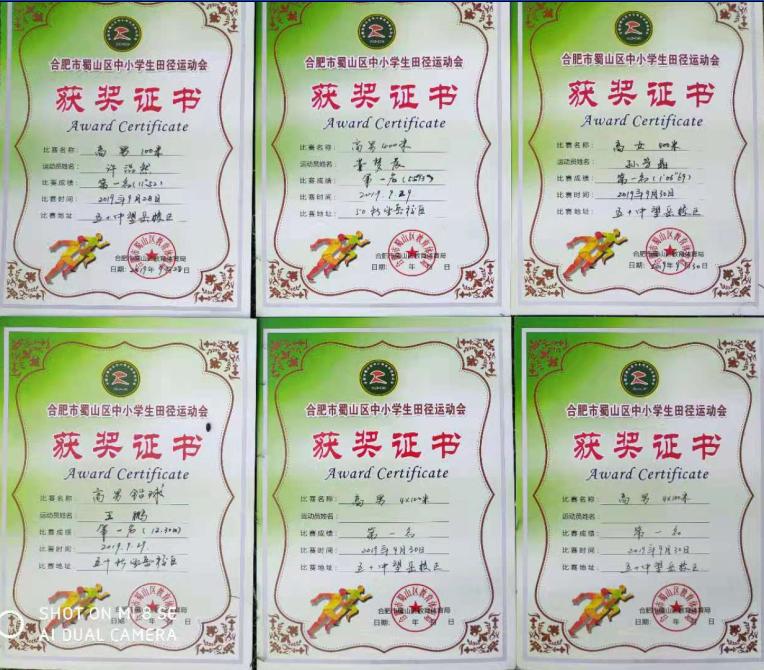 合肥市蜀山区中小学生田径运动会
获奖证书
Award Certificate
比赛名称: 高男 100米
运动员姓名: 许
比赛成绩: 第一名(11"52)
比赛时间: 2019年9月28日
比赛地址: 五十中望岳校区
合肥市蜀山区教育体育局
日期: 2019年9月28日
合肥市蜀山区中小学生田径运动会
获奖证书
Award Certificate
比赛名称: 高男400米
运动员姓名: 梦
比赛成绩: 第一名
比赛时间: 2019.9.29
比赛地址: 50中望岳校区
合肥市蜀山区教育体育局
日期: 年 月 日
合肥市蜀山区中小学生田径运动会
获奖证书
Award Certificate
比赛名称: 高女 400米
运动员姓名: 孙
比赛成绩: 第一名(1'05"59)
比赛时间: 2019年9月30日
比赛地址: 五十中望岳校区
合肥市蜀山区教育体育局
日期: 2019年9月30日
合肥市蜀山区中小学生田径运动会
获奖证书
Award Certificate
比赛名称: 高男铅球
运动员姓名: 王鹏
比赛成绩: 第一名(12.30m)
比赛时间: 2019.9.29.
比赛地址: 五十中望岳校区
合肥市蜀山区中小学生田径运动会
获奖证书
Award Certificate
比赛名称: 高男 4x100米
运动员姓名:
比赛成绩: 第一名
比赛时间: 2019年9月30日
比赛地址: 五十中望岳校区
合肥市蜀山区教育体育局
日期: 年 月 日
合肥市蜀山区中小学生田径运动会
获奖证书
Award Certificate
比赛名称: 高男 4x100米
运动员姓名:
比赛成绩: 第一名
比赛时间: 2019年9月30日
比赛地址: 五十中望岳校区
合肥市蜀山区教育体育局
日期: 年 月 日
SHOT ON MI 8 SE
AI DUAL CAMERA